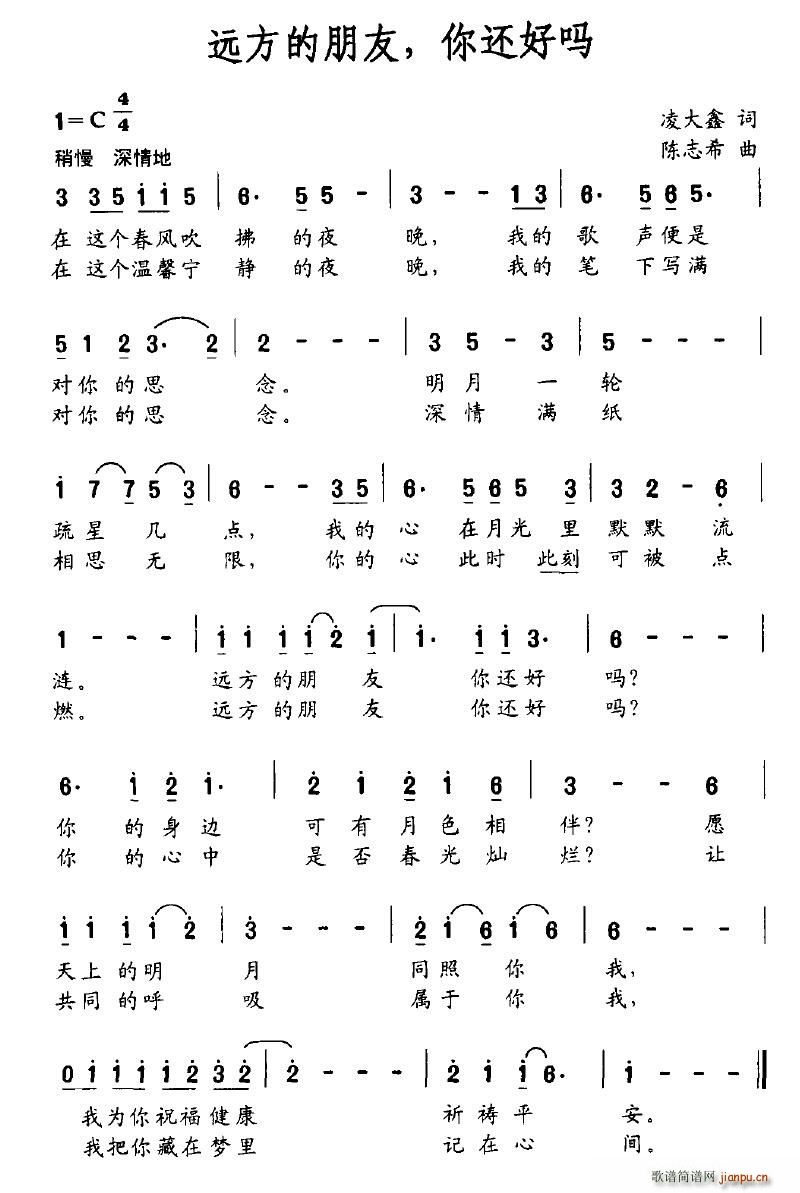 远方的朋友，你还好吗
1=C 4/4
凌大鑫 词
稍慢 深情地
陈志希 曲
3 3 5 i i 5 | 6· 5 5 | 3 - - 1 3 | 6· 5 6 5· |
在 这个春风吹 拂 的夜 晚， 我的 歌 声便是
在 这个温馨宁 静 的夜 晚， 我的 笔 下写满
5 1 2 3· 2 | 2 - - - | 3 5 - 3 | 5 - - - |
对你 的思 念。 明月 一 轮
对你 的思 念。 深情 满 纸
i 7 7 5 3 | 6 - - 3 5 | 6· 5 6 5 3 | 3 2 - 6
疏星 几 点， 我的 心 在月光 里 默默 流
相思 无 限， 你的 心 此时 此刻 可被 点
1 - - - | i i i i 2 i | i· i i 3· | 6 - - - |
涟。 远方 的朋 友 你还好 吗？
燃。 远方 的朋 友 你还好 吗？
6· i 2 i· | 2 i 2 i 6 | 3 - - 6
你 的 身 边 可 有 月 色 相 伴？ 愿
你 的 心 中 是 否 春 光 灿 烂？ 让
i i i i 2 | 3 - - - | 2 i 6 i 6 | 6 - - -
天上 的明 月 同照 你 我，
共同 的呼 吸 属于 你 我，
0 i i i i 2 3 2 | 2 - - | 2 i i 6· | i - - ‖
我为你祝福健康 祈祷平 安。
我把你藏在梦里 记在心 间。
歌谱简谱网 jianpu.cn